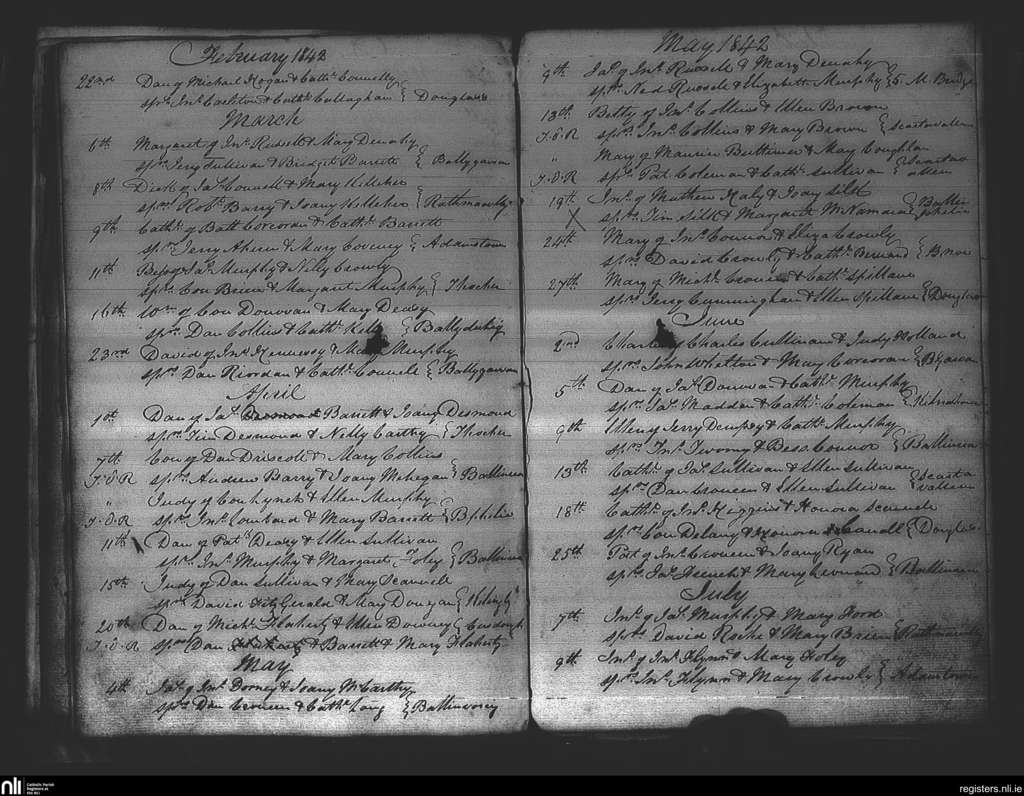 February 1842
22nd Dan of Michael Hogan & Cathe. Connelly
sprs. Jno. Carleton & Cathe. Callaghan } Douglas
March
6th Margaret of Jno. Russell & Mary Denahy
sprs. Jerry Sullivan & Bridget Barrett } Ballygarvan
8th Dick of Jas. Connell & Mary Kelleher
sprs. Robt. Barry & Joany Kelleher } Rathmacully
9th Cathe. of Batt Corcoran & Cathe. Barrett
sprs. Jerry Ahern & Mary Coveney } Adamstown
11th Bess of Jas. Murphy & Nelly Crowly
sprs. Con Brien & Margaret Murphy }
16th Wm. of Con Donovan & Mary Deasy
sprs. Dan Collins & Cathe. Kelly } Ballyduhig
23rd David of Jno. Hennessy & Mary Murphy
sprs. Dan Riordan & Cathe. Connell } Ballygarvan
April
1st Dan of Jas. Barrett & Joany Desmond
sprs. Tim Desmond & Nelly Carthy }
7th Con of Dan Driscoll & Mary Collins
J.O.R sprs. Andrew Barry & Joany Mehegan } Ballinrea
" Judy of Con Lynch & Ellen Murphy
J.O.R sprs. Jno. Lombard & Mary Barrett }
11th Dan of Patk. Deasy & Ellen Sullivan
sprs. Jno. Murphy & Margaret Foley } Ballinrea
15th Judy of Dan Sullivan & Mary Scannell
sprs. David FitzGerald & Mary Donegan }
20th Dan of Michl. Flaherty & Ellen Downey }
J.O.R sprs. Dan Barrett & Mary Flaherty
May
4th Jas. of Jno. Dorney & Joany McCarthy
sprs. Dan Croneen & Cathe. Long } Ballinvorey
May 1842
9th Jas. of Jno. Russell & Mary Denahy
sprs. Ned Russell & Elizabeth Murphy } 5 M. Bridge
13th Betty of Jno. Collins & Ellen Brown
J.O.R sprs. Jno. Collins & Mary Brown } Scartnallen
" Mary of Maurice Buttimer & Mary Coughlan
J.O.R sprs. Pat Coleman & Cathe. Sullivan }
19th Jno. of Mathew Haly & Joany Silk
X sprs. Tim Silk & Margaret McNamara }
24th Mary of Jno. Connor & Eliza Crowly
sprs. David Crowly & Cathe. Bernard }
27th Mary of Michl. Croneen & Cathe. Spillane
sprs. Jerry Cunningham & Ellen Spillane } Douglas
June
2nd Charles of Charles Cullinan & Judy Holland
sprs. John Whelton & Mary Corcoran } Bgarvan
5th Dan of Jas. Donovan & Cathe. Murphy
sprs. Jas. Madden & Cathe. Coleman }
9th Ellen of Jerry Dempsey & Cathe. Murphy
sprs. Jno. Twomy & Bess Connor } Ballinrea
13th Cathe. of Jas. Sullivan & Ellen Sullivan
sprs. Dan Croneen & Ellen Sullivan }
18th Cathe. of Jno. Higgins & Honora Scannell
sprs. Con Delany & Honora Canall } Douglas
25th Pat of Jno. Croneen & Joany Ryan
sprs. Jas. & Mary Leonard } Ballinrea
July
7th Jno. of Jas. Murphy & Mary Ford
sprs. David Roche & Mary Brien } Rathmacully
9th Jno. of Jno. Flynn & Mary Foley
sprs. Jno. Flynn & Mary Crowly } Adamstown
nli Catholic Parish Registers at the NLI
registers.nli.ie